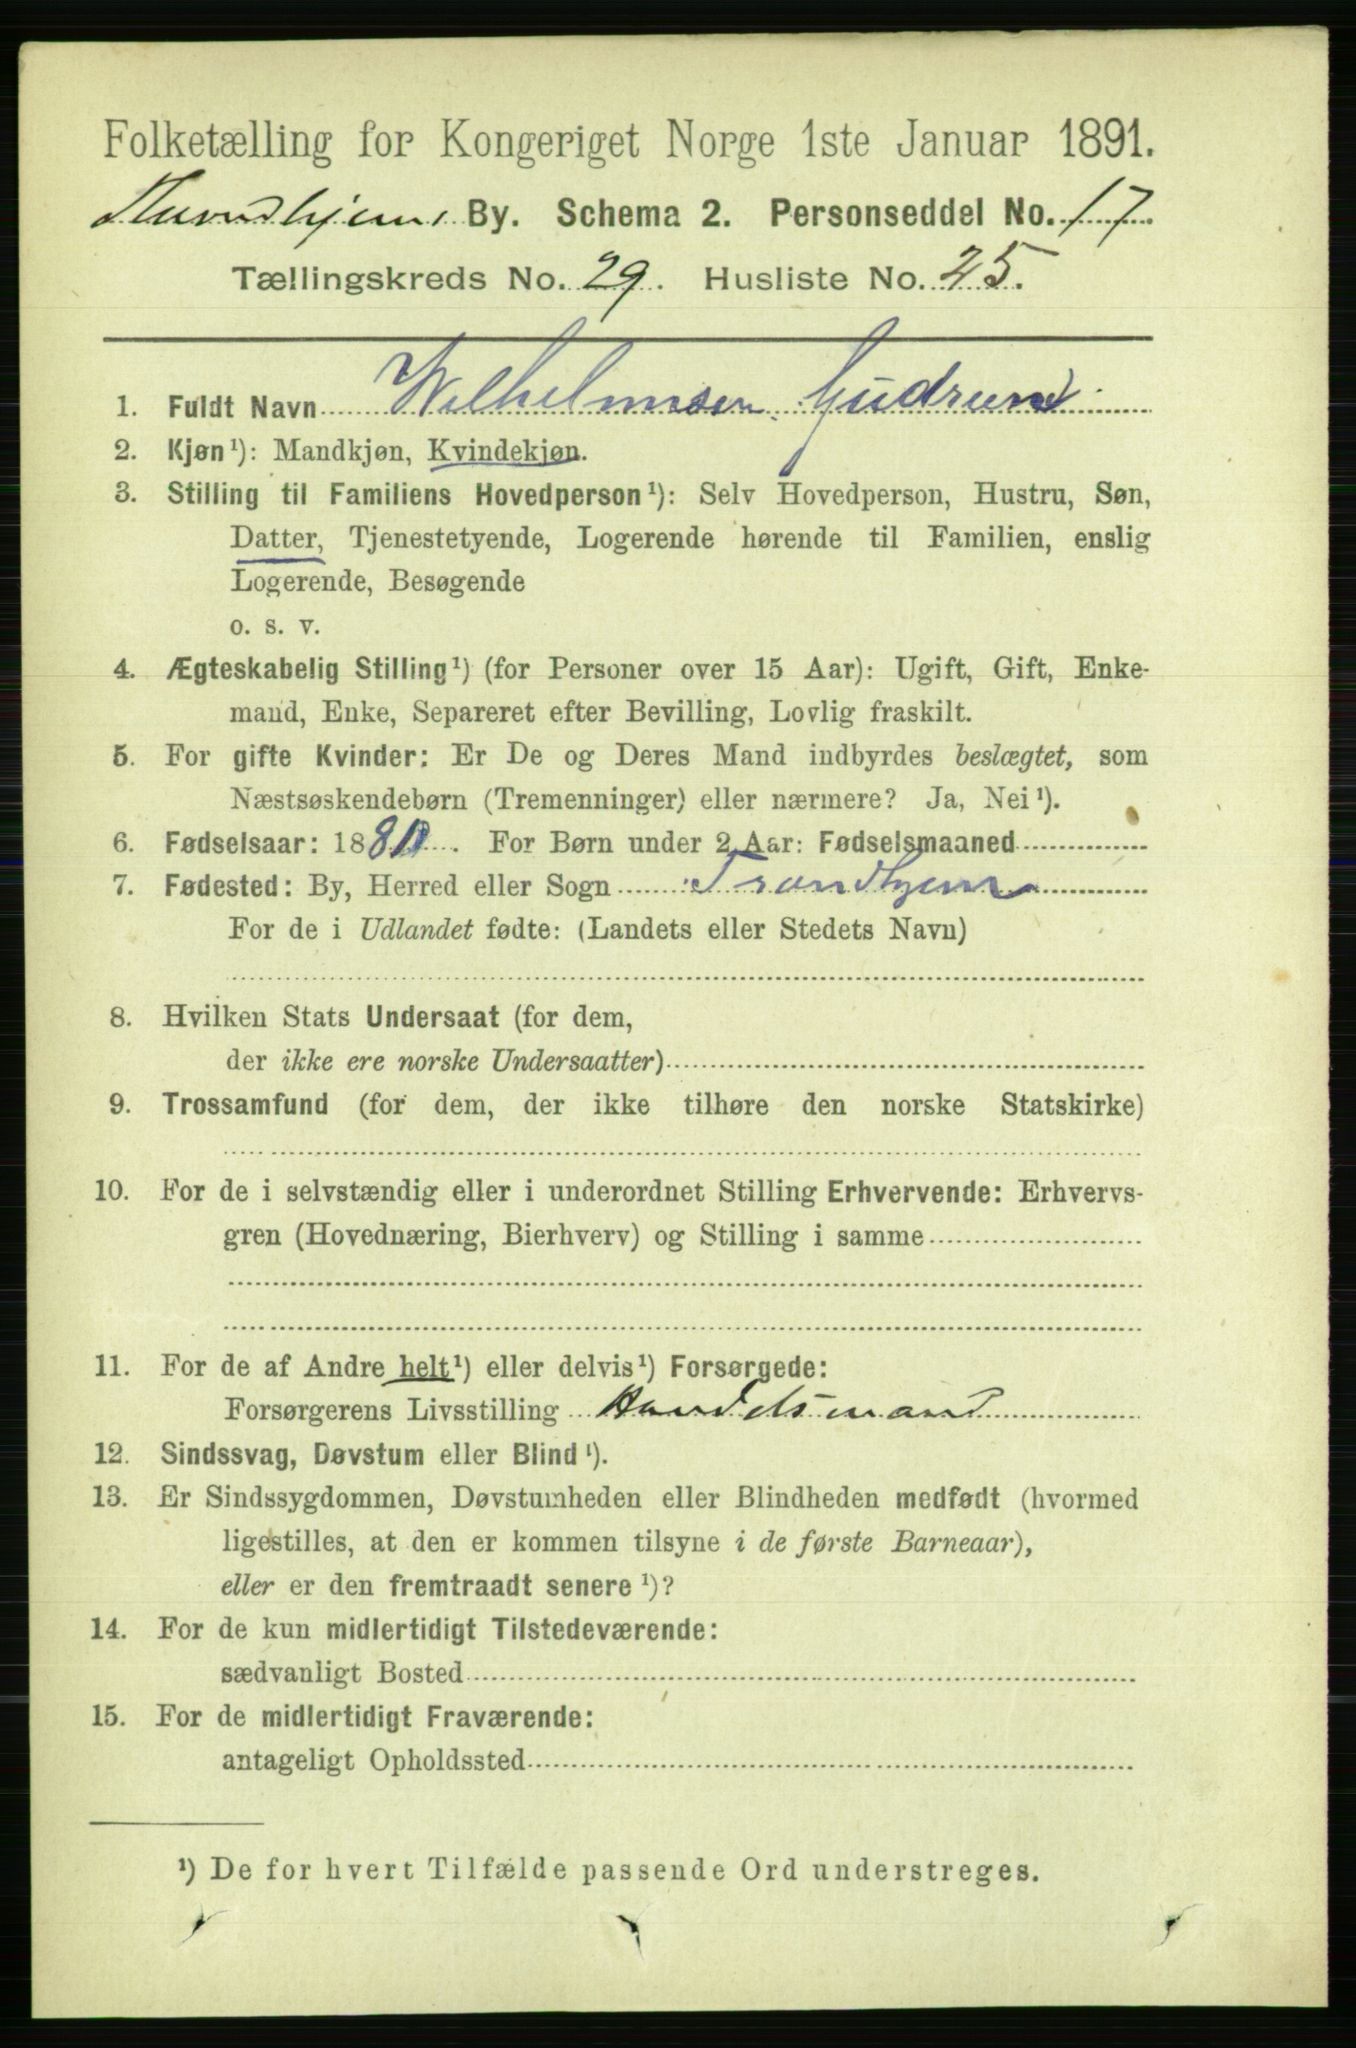 Folketælling for Kongeriget Norge 1ste Januar 1891.
Throndhjems By. Schema 2. Personseddel No. 17.
Tællingskreds No. 29. Husliste No. 25.
1. Fuldt Navn Wilhelmsen, Gudrun
2. Kjøn¹): Mandkjøn, Kvindekjøn.
3. Stilling til Familiens Hovedperson¹): Selv Hovedperson, Hustru, Søn,
Datter, Tjenestetyende, Logerende hørende til Familien, enslig
Logerende, Besøgende
o. s. v.
4. Ægteskabelig Stilling¹) (for Personer over 15 Aar): Ugift, Gift, Enke-
mand, Enke, Separeret efter Bevilling, Lovlig fraskilt.
5. For gifte Kvinder: Er De og Deres Mand indbyrdes beslægtet, som
Næstsøskendebørn (Tremenninger) eller nærmere? Ja, Nei¹).
6. Fødselsaar: 18 . For Børn under 2 Aar: Fødselsmaaned
7. Fødested: By, Herred eller Sogn Trondhjem
For de i Udlandet fødte: (Landets eller Stedets Navn)
8. Hvilken Stats Undersaat (for dem,
der ikke ere norske Undersaatter)
9. Trossamfund (for dem, der ikke tilhøre den norske Statskirke)
10. For de i selvstændig eller i underordnet Stilling Erhvervende: Erhvervs-
gren (Hovednæring, Bierhverv) og Stilling i samme
11. For de af Andre helt¹) eller delvis¹) Forsørgede:
Forsørgerens Livsstilling Handelsmand
12. Sindssvag, Døvstum eller Blind¹).
13. Er Sindssygdommen, Døvstumheden eller Blindheden medfødt (hvormed
ligestilles, at den er kommen tilsyne i de første Barneaar),
eller er den fremtraadt senere¹)?
14. For de kun midlertidigt Tilstedeværende:
sædvanligt Bosted
15. For de midlertidigt Fraværende:
antageligt Opholdssted
¹) De for hvert Tilfælde passende Ord understreges.